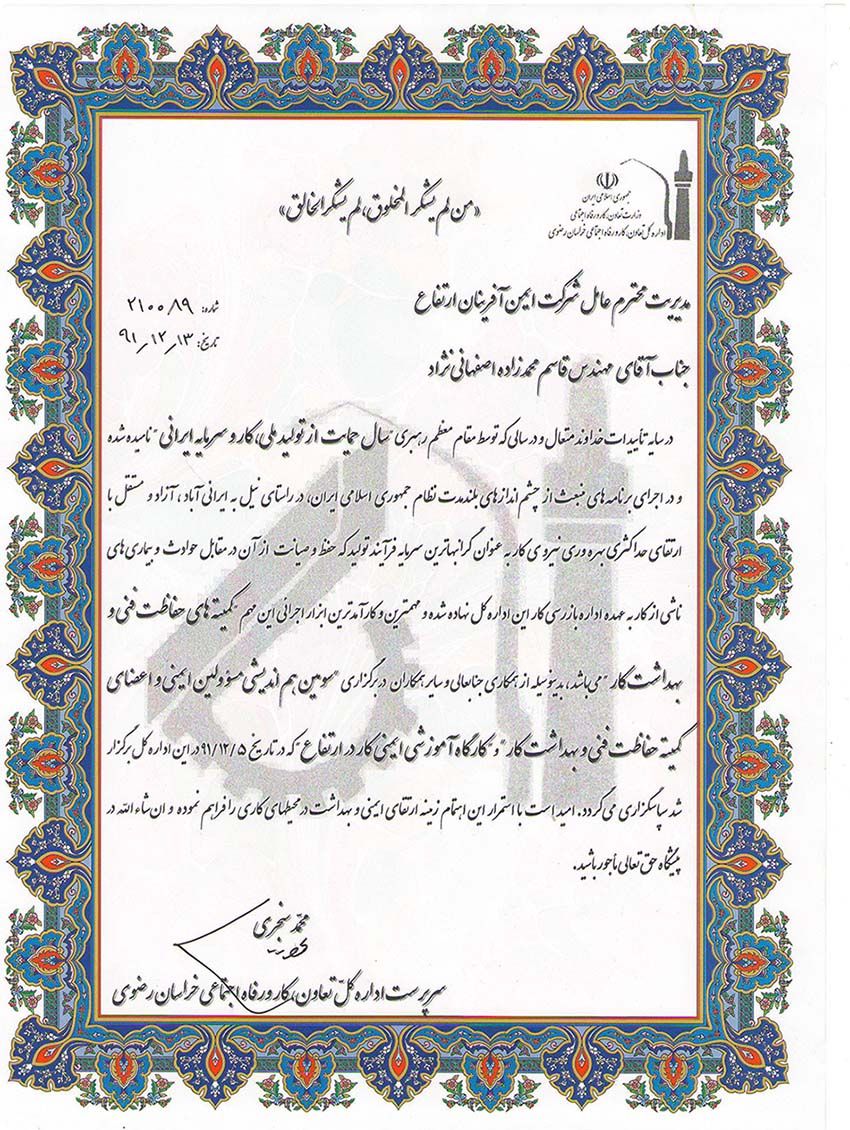 جمهوری اسلامی ایران
وزارت تعاون، کار و رفاه اجتماعی
اداره کل تعاون، کار و رفاه اجتماعی خراسان رضوی
«من لم یشکر المخلوق، لم یشکر الخالق»
شماره: ۲۱۰۰۸۹
تاریخ: ۹۱/۱۲/۱۳
مدیریت محترم عامل شرکت ایمن آفرینان ارتفاع
جناب آقای مهندس قاسم محمدزاده اصفهانی نژاد
در سایه تأییدات خداوند متعال و در سالی که توسط مقام معظم رهبری "سال حمایت از تولید ملی، کار و سرمایه ایرانی" نامیده شده
و در اجرای برنامه های منبعث از چشم اندازهای بلندمدت نظام جمهوری اسلامی ایران، در راستای نیل به ایرانی آباد، آزاد و مستقل با
ارتقای حداکثری بهره وری نیروی کار به عنوان گرانبهاترین سرمایه فرآیند تولید که حفظ و صیانت از آن در مقابل حوادث و بیماری های
ناشی از کار به عهده اداره بازرسی کار این اداره کل نهاده شده و مهمترین و کارآمدترین ابزار اجرائی این مهم "کمیته های حفاظت فنی و
بهداشت کار" می باشد، بدینوسیله از همکاری جنابعالی و سایر همکاران در برگزاری "سومین هم اندیشی مسؤولین ایمنی و اعضای
کمیته حفاظت فنی و بهداشت کار" و "کارگاه آموزشی ایمنی کار در ارتفاع" که در تاریخ ۹۱/۱۲/۵ در این اداره کل برگزار
شد سپاسگزاری می گردد. امید است با استمرار این اهتمام زمینه ارتقای ایمنی و بهداشت در محیطهای کاری را فراهم نموده و ان شاء الله در
پیشگاه حق تعالی مأجور باشید.
محمد سنجری
سرپرست اداره کلّ تعاون، کار و رفاه اجتماعی خراسان رضوی